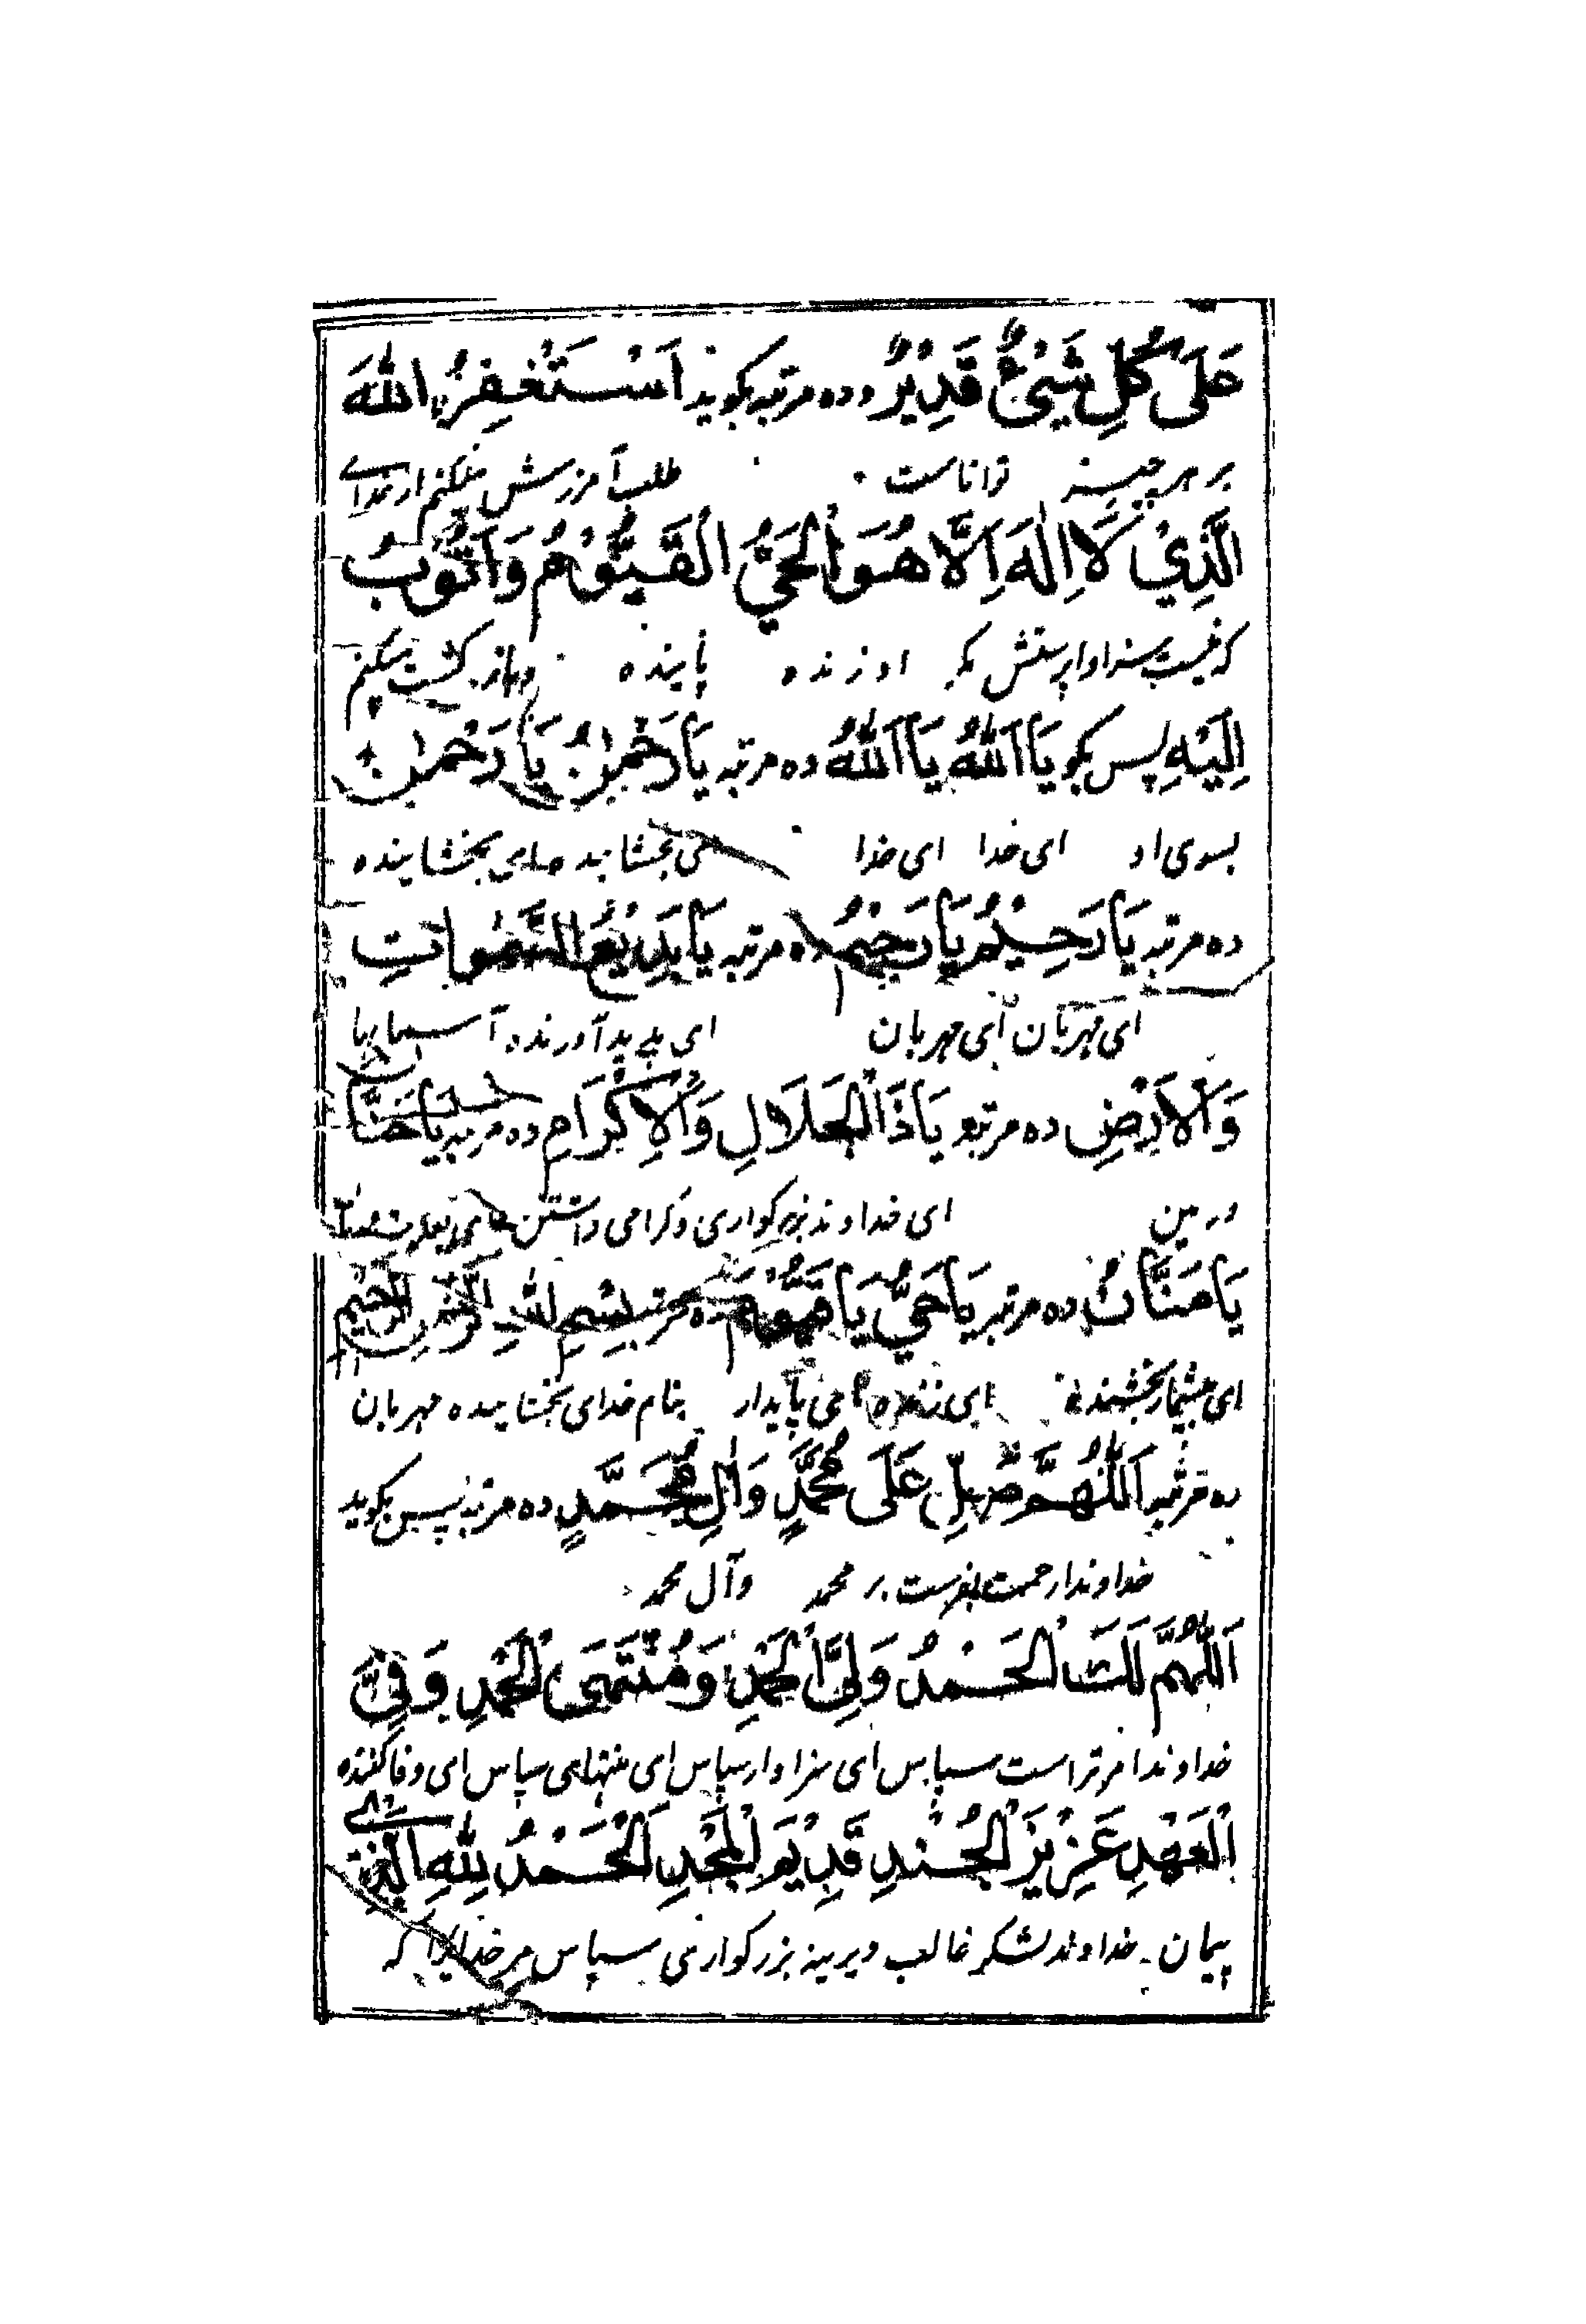 عَلٰى كُلِّ شَیْئٍ قَدِيْرٌ و ده مرتبه بگوید اَسْتَغْفِرُ اللّٰهَ
بر هر چیز توانا است طلب آمرزش میکنم از خدای
الَّذِيْ لَا اِلٰهَ اِلَّا هُوَ الْحَيُّ الْقَيُّوْمُ وَ اَتُوْبُ
که نیست سزاوار پرستش مگر او زنده پاینده و باز گشت میکنم
اِلَيْهِ پس بگو يَا اَللّٰهُ يَا اَللّٰهُ ده مرتبه يَا رَحْمٰنُ يَا رَحْمٰنُ
بسوی او ای خدا ای خدا ای بخشاینده ای بخشاینده
ده مرتبه يَا رَحِيْمُ يَا رَحِيْمُ ده مرتبه يَا بَدِيْعَ السَّمٰوَاتِ
ای مهربان ای مهربان ای پدید آورنده آسمانها
وَ الْاَرْضِ ده مرتبه يَا ذَا الْجَلَالِ وَ الْاِكْرَامِ ده مرتبه يَا حَنَّانُ
و زمین ای خداوند بزرگواری و گرامی داشتن
يَا مَنَّانُ ده مرتبه يَا حَيُّ يَا قَيُّوْمُ ده مرتبه بِسْمِ اللّٰهِ الرَّحْمٰنِ الرَّحِيْمِ
ای بخشنده ای زنده ای پایدار بنام خدای بخشاینده مهربان
ده مرتبه اَللّٰهُمَّ صَلِّ عَلَى مُحَمَّدٍ وَ اٰلِ مُحَمَّدٍ ده مرتبه پس بگوید
خداوندا رحمت بفرست بر محمد و آل محمد
اَللّٰهُمَّ لَكَ الْحَمْدُ وَلِيَّ الْحَمْدِ وَ مُنْتَهَى الْحَمْدِ وَفِيَّ
خداوندا مر تراست سپاس ای سزاوار سپاس ای منتهای سپاس ای وفا کننده
الْعَهْدِ عَزِيْزَ الْجُنْدِ قَدِيْمَ الْمَجْدِ اَلْحَمْدُ لِلّٰهِ الَّذِيْ
پیمان خداوند لشکر غالب دیرینه بزرگواری سپاس مر خدایرا که